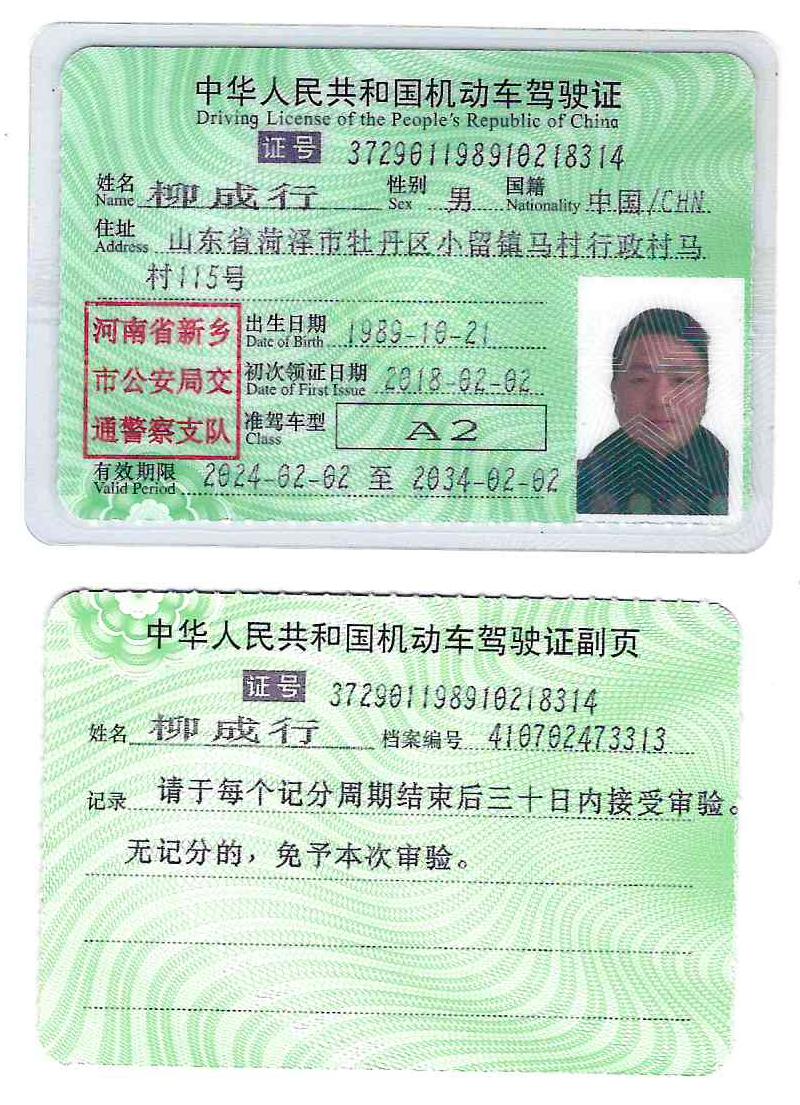 中华人民共和国机动车驾驶证
Driving License of the People's Republic of China
证号 372901198910218314
姓名 Name 柳成行 性别 Sex 男 国籍 Nationality 中国/CHN
住址 Address 山东省菏泽市牡丹区小留镇马村行政村马
村115号
河南省新乡
市公安局交
通警察支队
出生日期 Date of Birth 1989-10-21
初次领证日期 Date of First Issue 2018-02-02
准驾车型 Class A2
有效期限 Valid Period 2024-02-02 至 2034-02-02
中华人民共和国机动车驾驶证副页
证号 372901198910218314
姓名 柳成行 档案编号 410702473313
记录 请于每个记分周期结束后三十日内接受审验。
无记分的，免予本次审验。